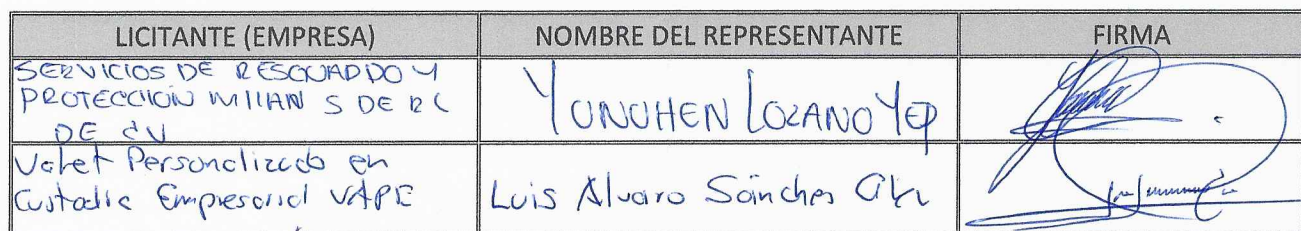 LICITANTE (EMPRESA) NOMBRE DEL REPRESENTANTE FIRMA
SERVICIOS DE RESGUARDO Y
PROTECCION MILLAN S DE RL
DE CV
YUNUHEN LOZANO YEP
Valet Personalizado en
Custodia Empresarial VAPE
Luis Alvaro Sánchez